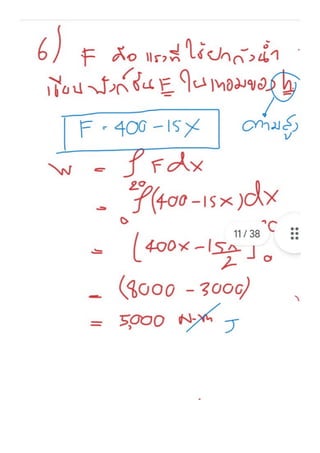 6) F คือ แรงที่ใช้ยกถังน้ำ
เขียนฟังก์ชัน F ในเทอมของ h
F = 400 - 15X ความสูง
W = ∫ F dx
= ₀∫²⁰ (400 - 15x) dx
= [400x - 15x/2]₀²⁰
11 / 38
= (8000 - 3000)
= 5,000 N.m J